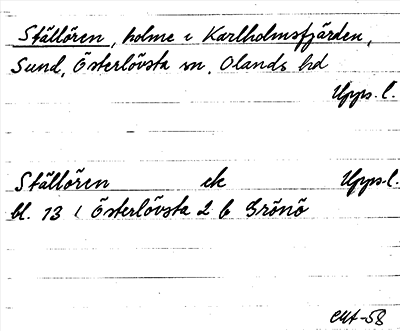 Ställören, holme i Karlholmsfjärden,
Sund, Österlövsta sn, Olands hd
Upps. l.
Ställören ek Upps. l.
bl. 13 / Österlövsta 2 b Grönö